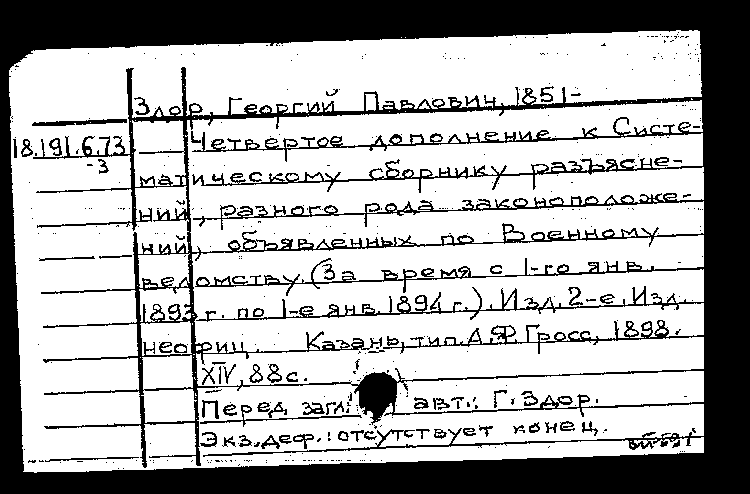 Здор, Георгий Павлович, 1851-
18.191.6.73 Четвертое дополнение к Систе-
-3
матическому сборнику разъясне-
ний, разного рода законоположе-
ний, объявленных по Военному
ведомству. (За время с 1-го янв.
1893 г. по 1-е янв. 1894 г.). Изд. 2-е. Изд.
неофиц. Казань, тип. А.Ф. Гросс, 1898.
XIV, 88 с.
Перед загл. авт.: Г. Здор.
Экз. деф.: отсутствует конец.